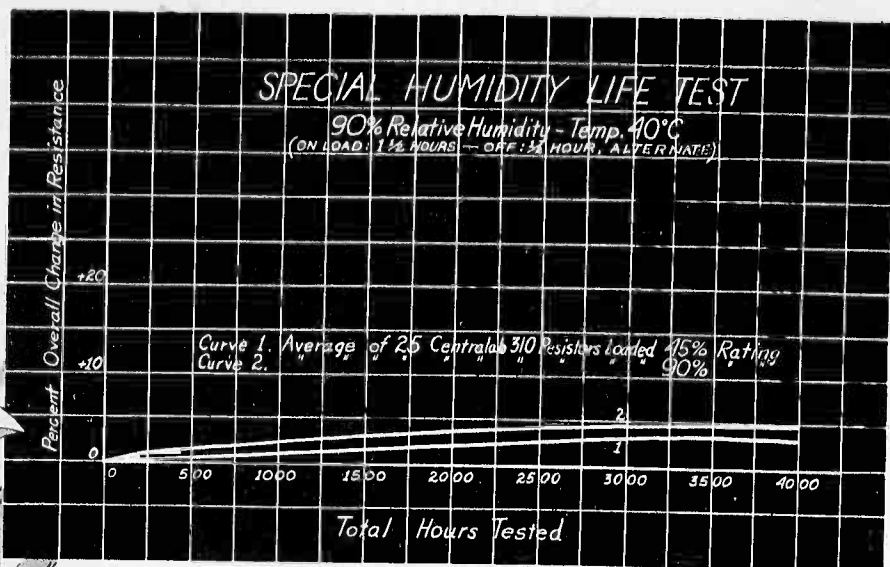 SPECIAL HUMIDITY LIFE TEST
90% Relative Humidity - Temp. 40°C
(ON LOAD: 1½ HOURS — OFF: ½ HOUR, ALTERNATE)
Percent Overall Change in Resistance
+20
+10
0
Curve 1. Average of 25 Centralab 310 Resistors Loaded 45% Rating
Curve 2. " " " " " " " " 90% " "
2
1
0 500 1000 1500 2000 2500 3000 3500 4000
Total Hours Tested